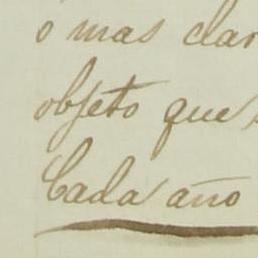 o mas clar
objeto que
Cada año